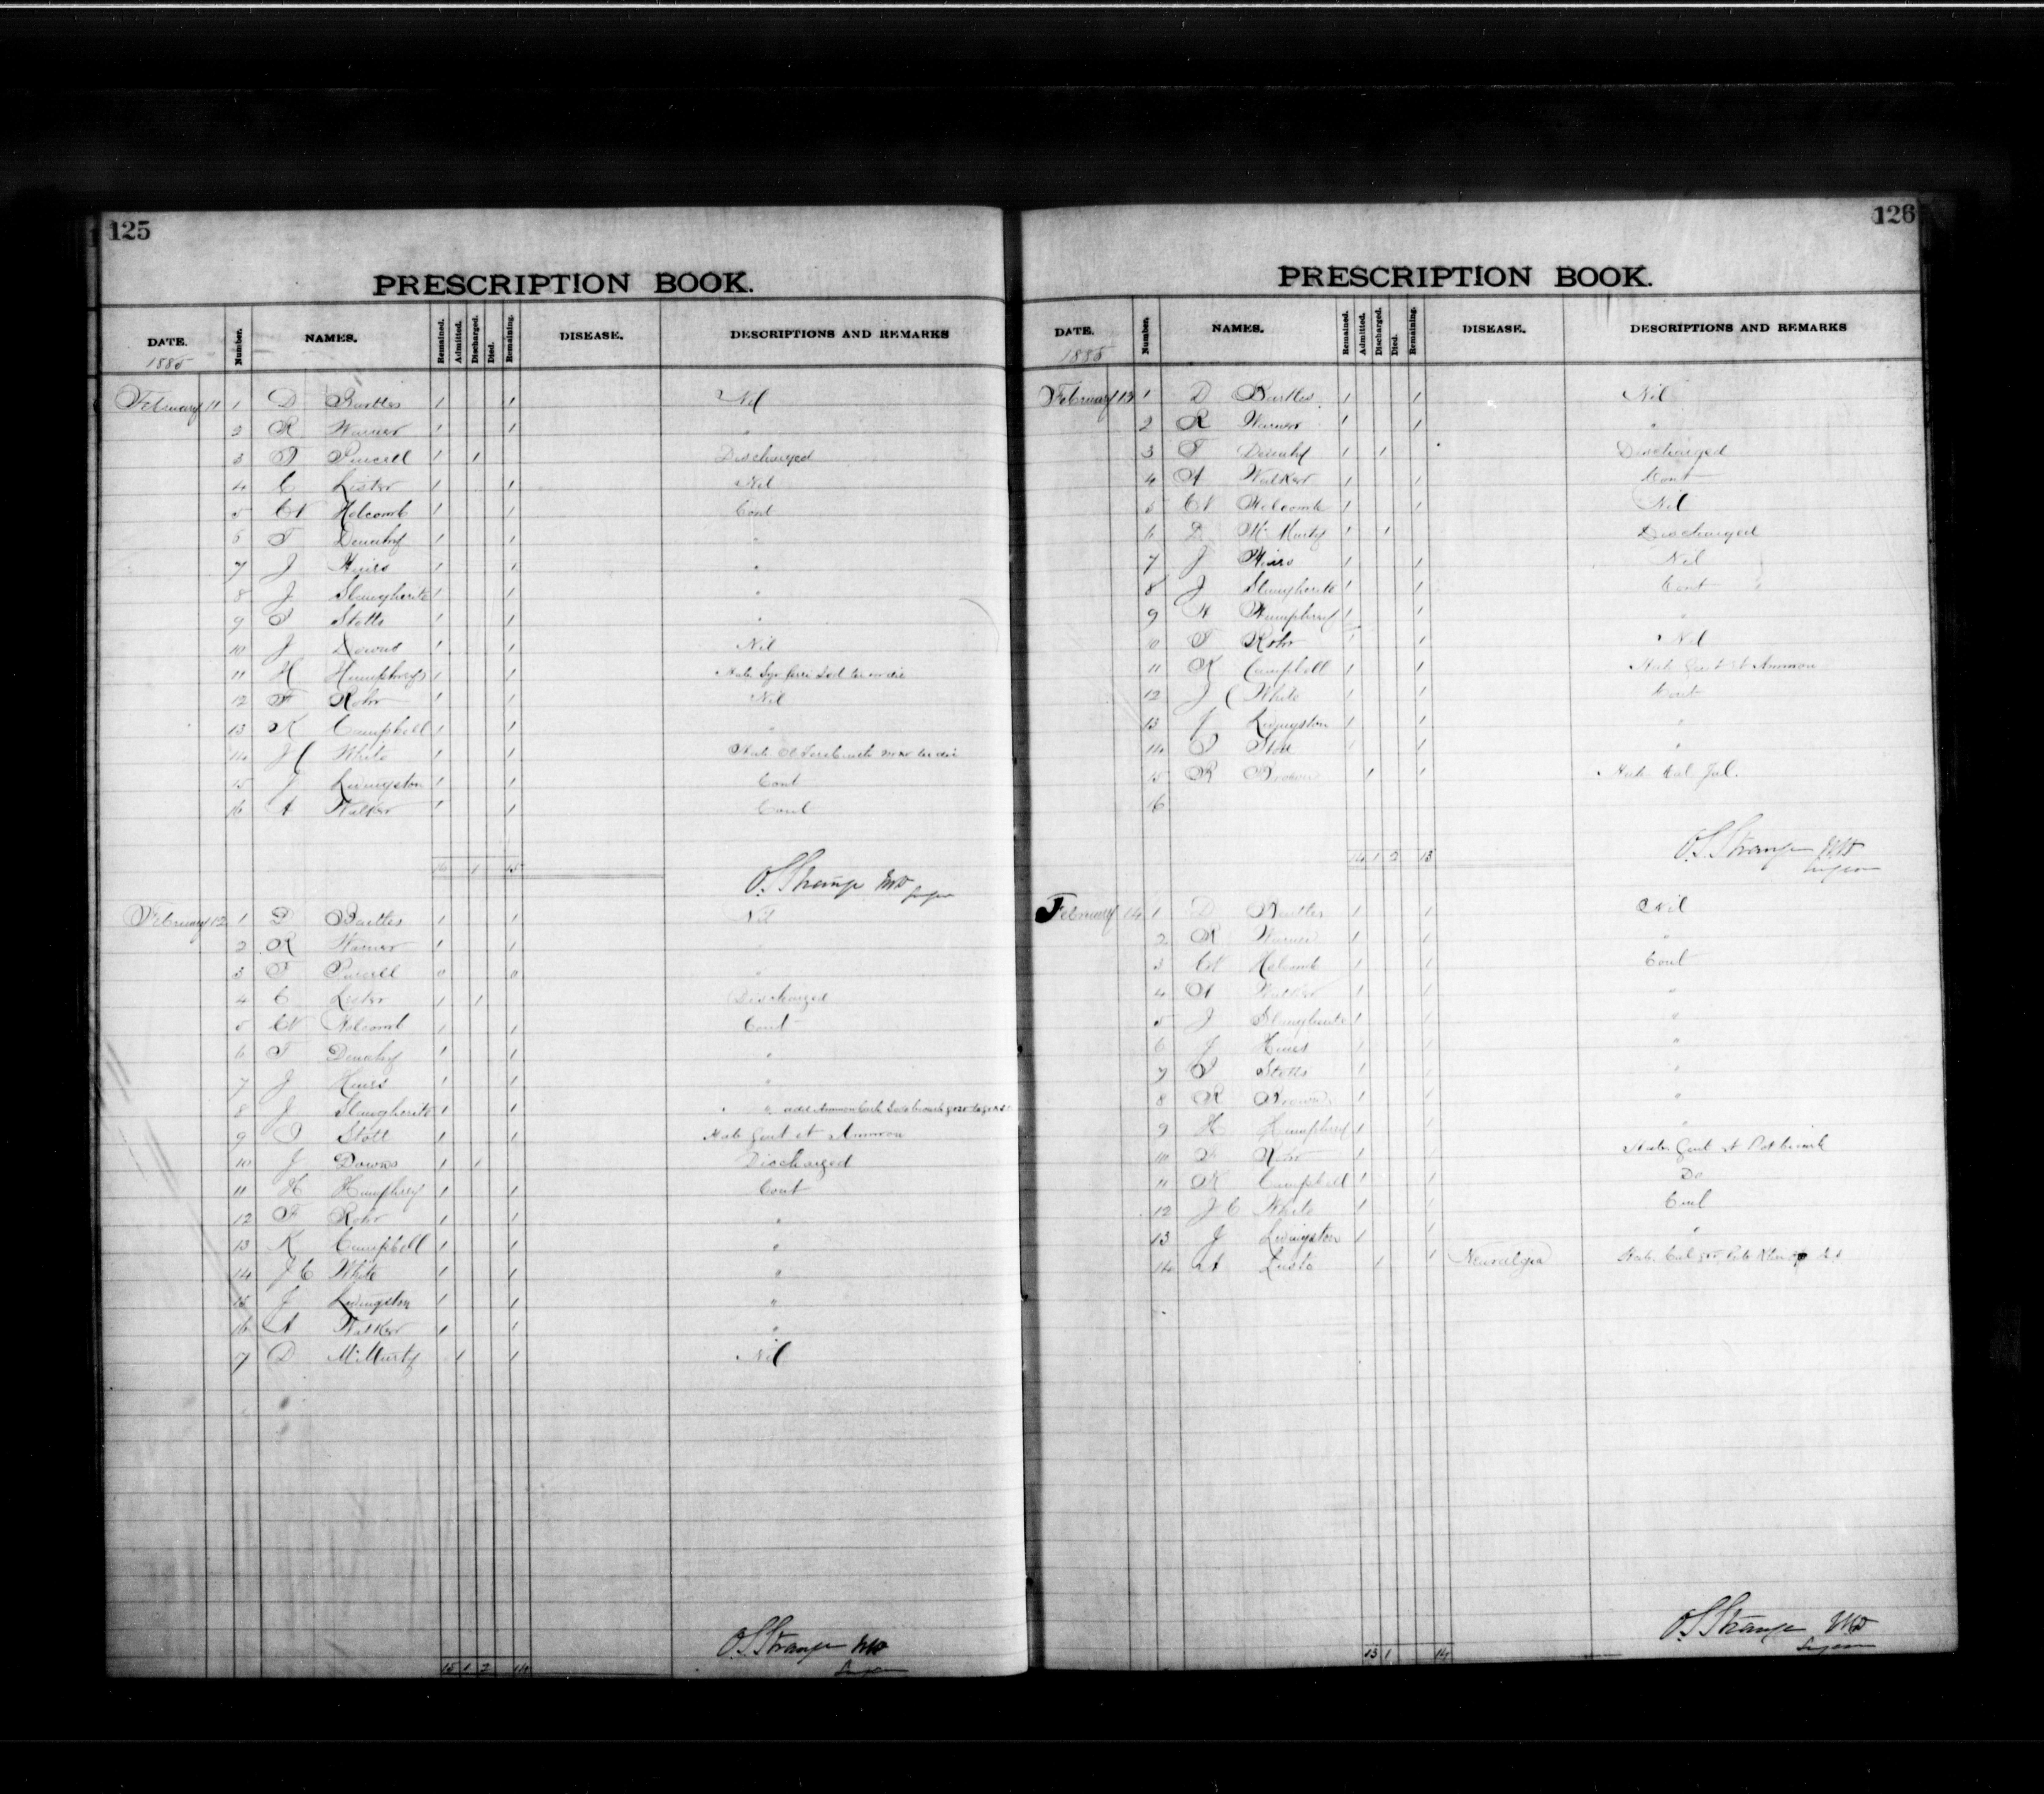 125
PRESCRIPTION BOOK.
DATE. Number. NAMES. Remained. Admitted. Discharged. Died. Remaining. DISEASE. DESCRIPTIONS AND REMARKS
1885
February 11 1 D Bartles 1 1 Nil
2 R Warner 1 1 "
3 T Purcell 1 1 Discharged
4 C Lester 1 1 Nil
5 W Holcomb 1 1 Cont
6 T Denehy 1 1 "
7 J Hiers 1 1 "
8 J Slaugherite 1 1 "
9 T Stotts 1 1 "
10 J Downs 1 1 Nil
11 H Humphreys 1 1 Hab Syr ferri Iod ter in die
12 F Rohr 1 1 Nil
13 K Campbell 1 1 "
14 J C White 1 1 Hab Ol ter in die
15 J Livingston 1 1 Cont
16 A Walker 1 1 Cont
16 1 15
O. S. Strange MD Surgeon
February 12 1 D Bartles 1 1 Nil
2 R Warner 1 1 "
3 T Purcell 0 0 "
4 C Lester 1 1 Discharged
5 W Holcomb 1 1 Cont
6 T Denehy 1 1 "
7 J Hiers 1 1 "
8 J Slaugherite 1 1 " add Ammon Carb
9 T Stott 1 1 Hab Gent et Ammon
10 J Downs 1 1 Discharged
11 H Humphrey 1 1 Cont
12 F Rohr 1 1 "
13 K Campbell 1 1 "
14 J C White 1 1 "
15 J Livingston 1 1 "
16 A Walker 1 1 "
7 D McMurty 1 1 Nil
O. S. Strange MD
Surgeon
15 1 2 14
126
PRESCRIPTION BOOK.
DATE. Number. NAMES. Remained. Admitted. Discharged. Died. Remaining. DISEASE. DESCRIPTIONS AND REMARKS
1885
February 13 1 D Bartles 1 1 Nil
2 R Warner 1 1 "
3 T Denehy 1 1 Discharged
4 A Walker 1 1 Cont
5 W Holcomb 1 1 Nil
6 D McMurty 1 1 Discharged
7 J Hiers 1 1 Nil
8 J Slaugherite 1 1 Cont
9 H Humphrey 1 1 "
10 F Rohr 1 1 Nil
11 K Campbell 1 1 Hab Gent et Ammon
12 J C White 1 1 Cont
13 J Livingston 1 1 "
14 T Stott 1 1 "
15 R Brown 1 1 Hab Cal Jal.
16
14 1 2 13
O. S. Strange MD
Surgeon
February 14 1 D Bartles 1 1 Nil
2 R Warner 1 1 "
3 W Holcomb 1 1 Cont
4 A Walker 1 1 "
5 J Slaugherite 1 1 "
6 J Hiers 1 1 "
7 T Stotts 1 1 "
8 R Brown 1 1 "
9 H Humphrey 1 1 "
10 F Rohr 1 1 Hab Gent et Pot
11 K Campbell 1 1 Do
12 J C White 1 1 Cont
13 J Livingston 1 1 "
14 1 1 Neuralgia Hab
O. S. Strange MD
Surgeon
13 1 14